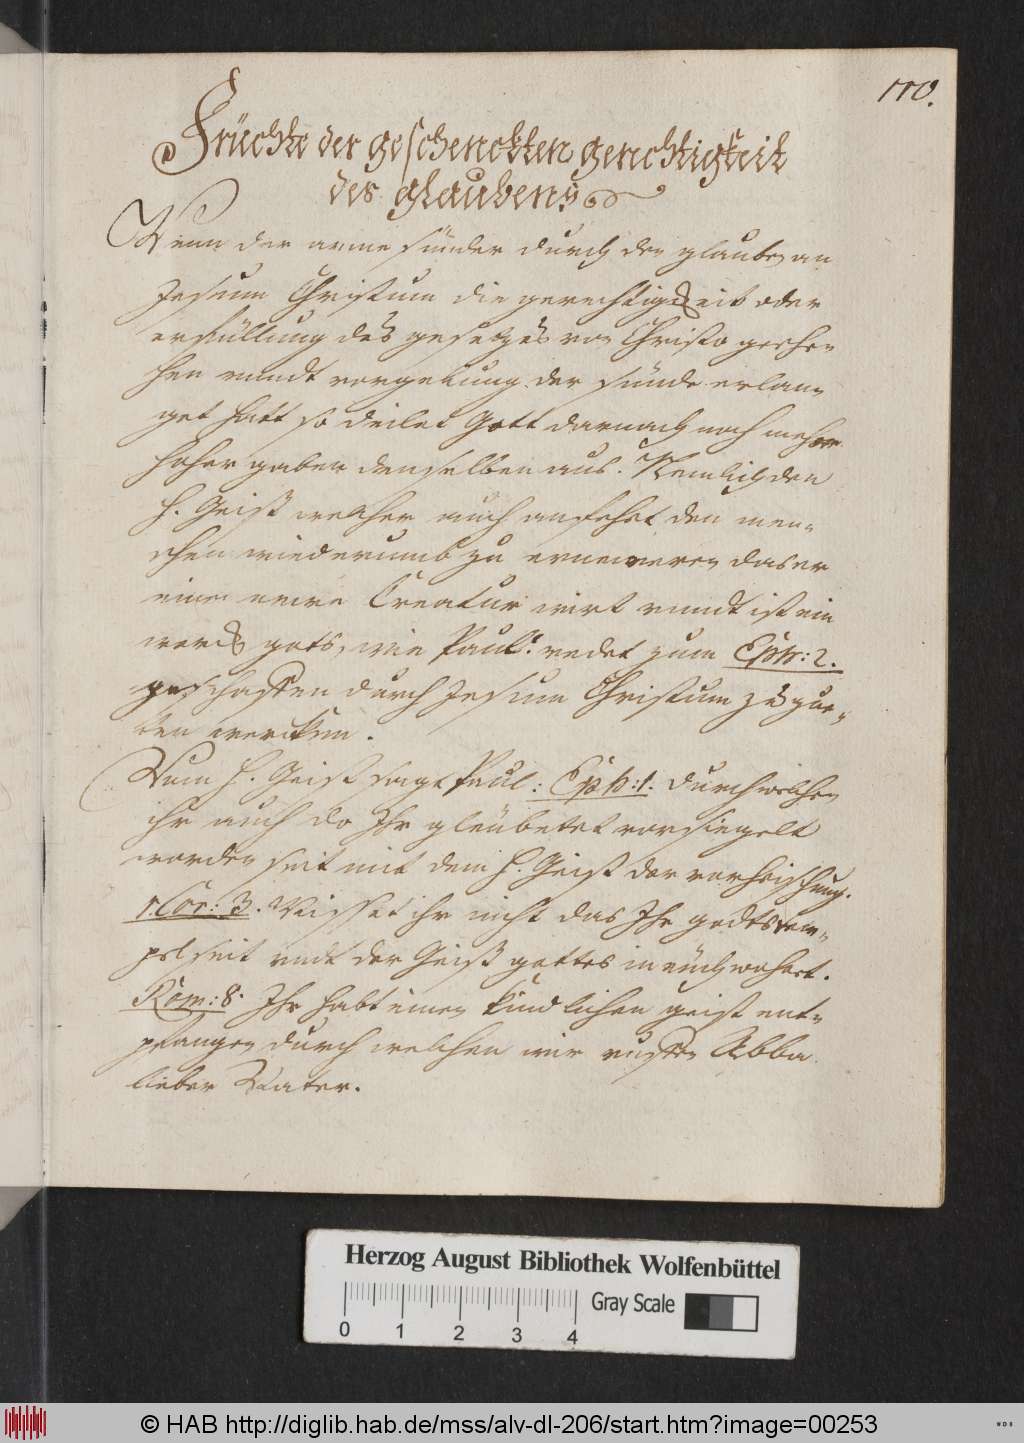 110.
Früchte der geschenckten gerechtigkeit
des glaubens
Wenn der arme sünder durch den glauben an
Jesum Christum die gerechtigkeit oder
erfüllung des gesetzes von Christo gesche¬
hen unndt vergebung der sünde erlan¬
get hatt so teilet Gott darnach noch mehr
hoher gaben denselben aus. Nemlich den
H. Geist welcher auch anfehet den men¬
schen wiederumb zu erneweren das er
eine newe Creatur wirt unndt ist ein
werck gots, wie Paul: redet zum Eph: 2.
geschaffen durch Jesum Christum zu gue¬
ten wercken.
Vom H. Geist sagt Paul: Eph: 1. durch welchen
ihr auch do Ihr gleubetet versiegelt
worden seit mit dem H. Geist der verheischung.
1. Cor: 3. Wisset ihr nicht das Ihr godts tem¬
pel seit undt der Geist gottes in euch wohnet.
Rom: 8. Ihr habt einen kindlichen geist ent¬
pfangen durch welchen wir ruffen Abba
lieber Vater.
Herzog August Bibliothek Wolfenbüttel
Gray Scale
0 1 2 3 4
© HAB http://diglib.hab.de/mss/alv-dl-206/start.htm?image=00253